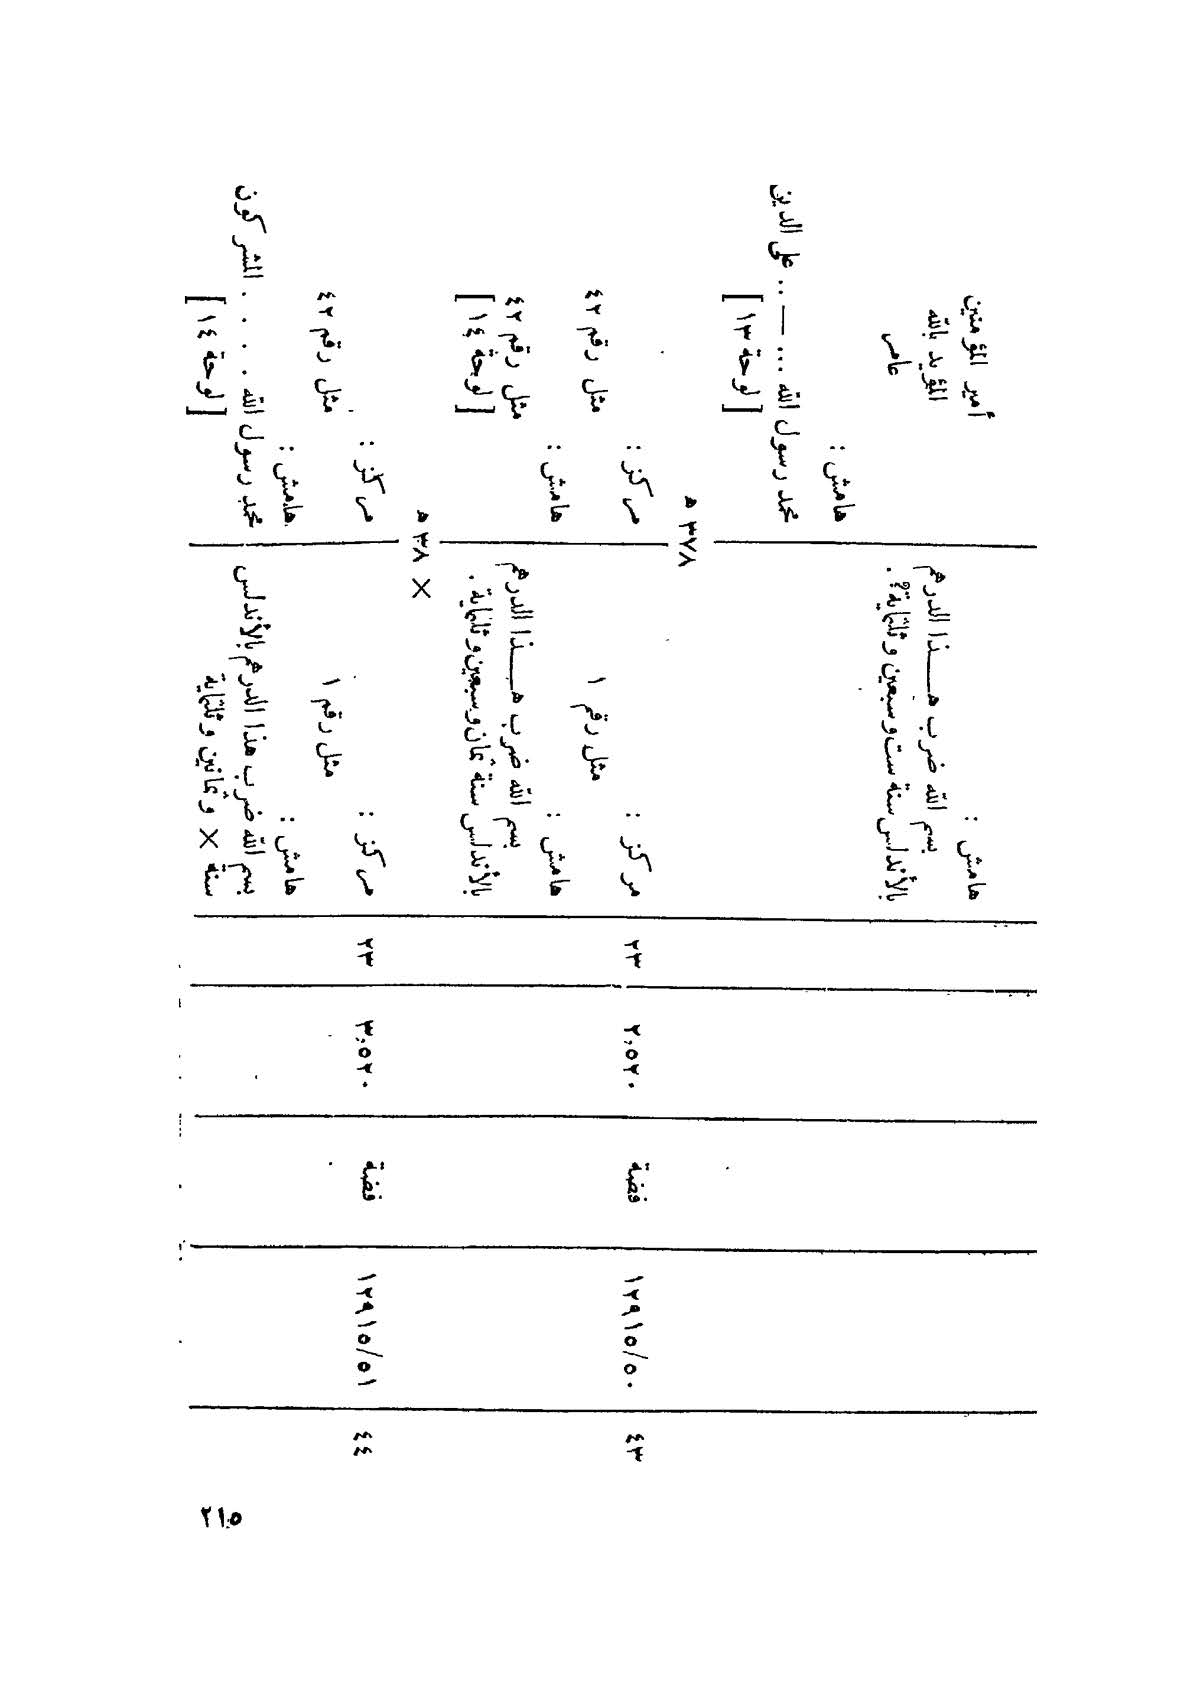 هامش :
بسم الله ضرب هـــذا الدرهم
بالأندلس سنة ست وسبعين وثلثماية؟ .
أمير المؤمنين
المؤيد بالله
عامر
هامش :
محمد رسول الله ... — .. على الدين
[ لوحة ١٣ ]
٣٧٨ هـ
٤٣
١٢٩١٥/٥٠
فضة
٢,٥٢٠
٢٣
مركز :
مثل رقم ١
هامش :
بسم الله ضرب هـــذا الدرهم
بالأندلس سنة ثمان وسبعين وثلثماية .
مركز :
مثل رقم ٤٢
هامش :
مثل رقم ٤٢
[ لوحة ١٤ ]
× ٣٨ هـ
٤٤
١٢٩١٥/٥١
فضة
٣,٥٢٠
٢٣
مركز :
مثل رقم ١
هامش :
بسم الله ضرب هذا الدرهم بالأندلس
سنة × وثمانين وثلثماية
مركز :
مثل رقم ٤٢
هامش :
محمد رسول الله . . . . المشركون
[ لوحة ١٤ ]
٢١٥